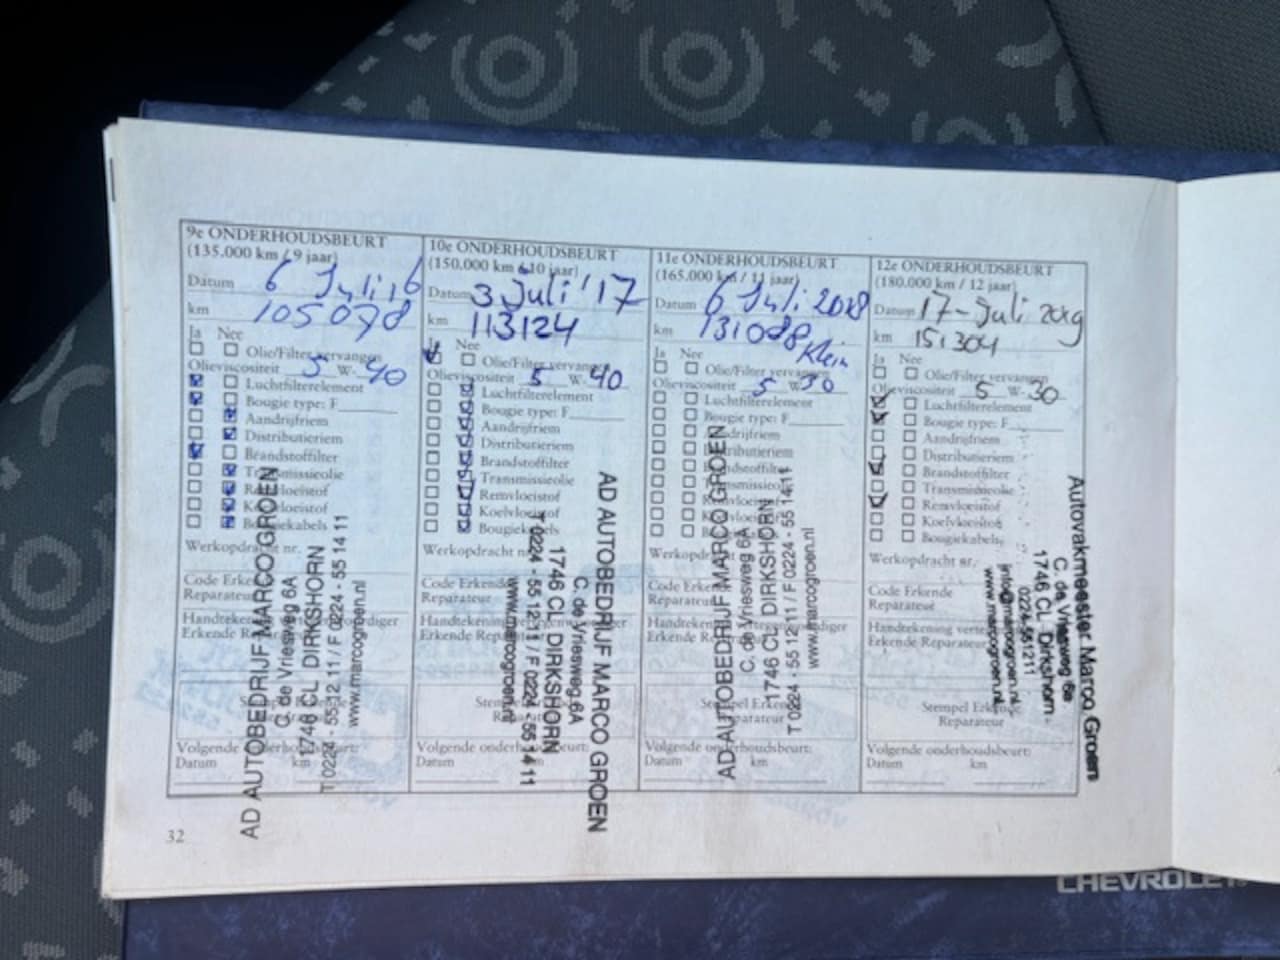 9e ONDERHOUDSBEURT
(135.000 km / 9 jaar)
Datum 6 Juli 16
km 105078
Ja Nee
Olie/Filter vervangen
Olieviscositeit 5 W- 40
Luchtfilterelement
Bougie type: F
Aandrijfriem
Distributieriem
Brandstoffilter
Transmissieolie
Remvloeistof
Koelvloeistof
Bougiekabels
Werkopdracht nr.
Code Erkende
Reparateur
Handtekening vertegenwoordiger
Erkende Reparateur
Stempel Erkende
Reparateur
Volgende onderhoudsbeurt:
Datum km
AD AUTOBEDRIJF MARCO GROEN
C. de Vriesweg 6A
1746 CL DIRKSHORN
T 0224 - 55 12 11 / F 0224 - 55 14 11
www.marcogroen.nl
10e ONDERHOUDSBEURT
(150.000 km / 10 jaar)
Datum 3 Juli '17
km 113124
Ja Nee
Olie/Filter vervangen
Olieviscositeit 5 W- 40
Luchtfilterelement
Bougie type: F
Aandrijfriem
Distributieriem
Brandstoffilter
Transmissieolie
Remvloeistof
Koelvloeistof
Bougiekabels
Werkopdracht nr.
Code Erkende
Reparateur
Handtekening vertegenwoordiger
Erkende Reparateur
Stempel Erkende
Reparateur
Volgende onderhoudsbeurt:
Datum km
AD AUTOBEDRIJF MARCO GROEN
C. de Vriesweg 6A
1746 CL DIRKSHORN
T 0224 - 55 12 11 / F 0224 - 55 14 11
www.marcogroen.nl
11e ONDERHOUDSBEURT
(165.000 km / 11 jaar)
Datum 6 Juli 2018
km 131088
Klein
Ja Nee
Olie/Filter vervangen
Olieviscositeit 5 W- 30
Luchtfilterelement
Bougie type: F
Aandrijfriem
Distributieriem
Brandstoffilter
Transmissieolie
Remvloeistof
Koelvloeistof
Bougiekabels
Werkopdracht nr.
Code Erkende
Reparateur
Handtekening vertegenwoordiger
Erkende Reparateur
Stempel Erkende
Reparateur
Volgende onderhoudsbeurt:
Datum km
AD AUTOBEDRIJF MARCO GROEN
C. de Vriesweg 6A
1746 CL DIRKSHORN
T 0224 - 55 12 11 / F 0224 - 55 14 11
www.marcogroen.nl
12e ONDERHOUDSBEURT
(180.000 km / 12 jaar)
Datum 17-Juli 2019
km 151304
Ja Nee
Olie/Filter vervangen
Olieviscositeit 5 W- 30
Luchtfilterelement
Bougie type: F
Aandrijfriem
Distributieriem
Brandstoffilter
Transmissieolie
Remvloeistof
Koelvloeistof
Bougiekabels
Werkopdracht nr.
Code Erkende
Reparateur
Handtekening
Erkende Reparateur
Stempel Erkende
Reparateur
Volgende onderhoudsbeurt:
Datum km
Autovakmeester Marco Groen
C. de Vriesweg 6a
1746 CL Dirkshorn
0224-551211
info@marcogroen.nl
www.marcogroen.nl
32
CHEVROLET